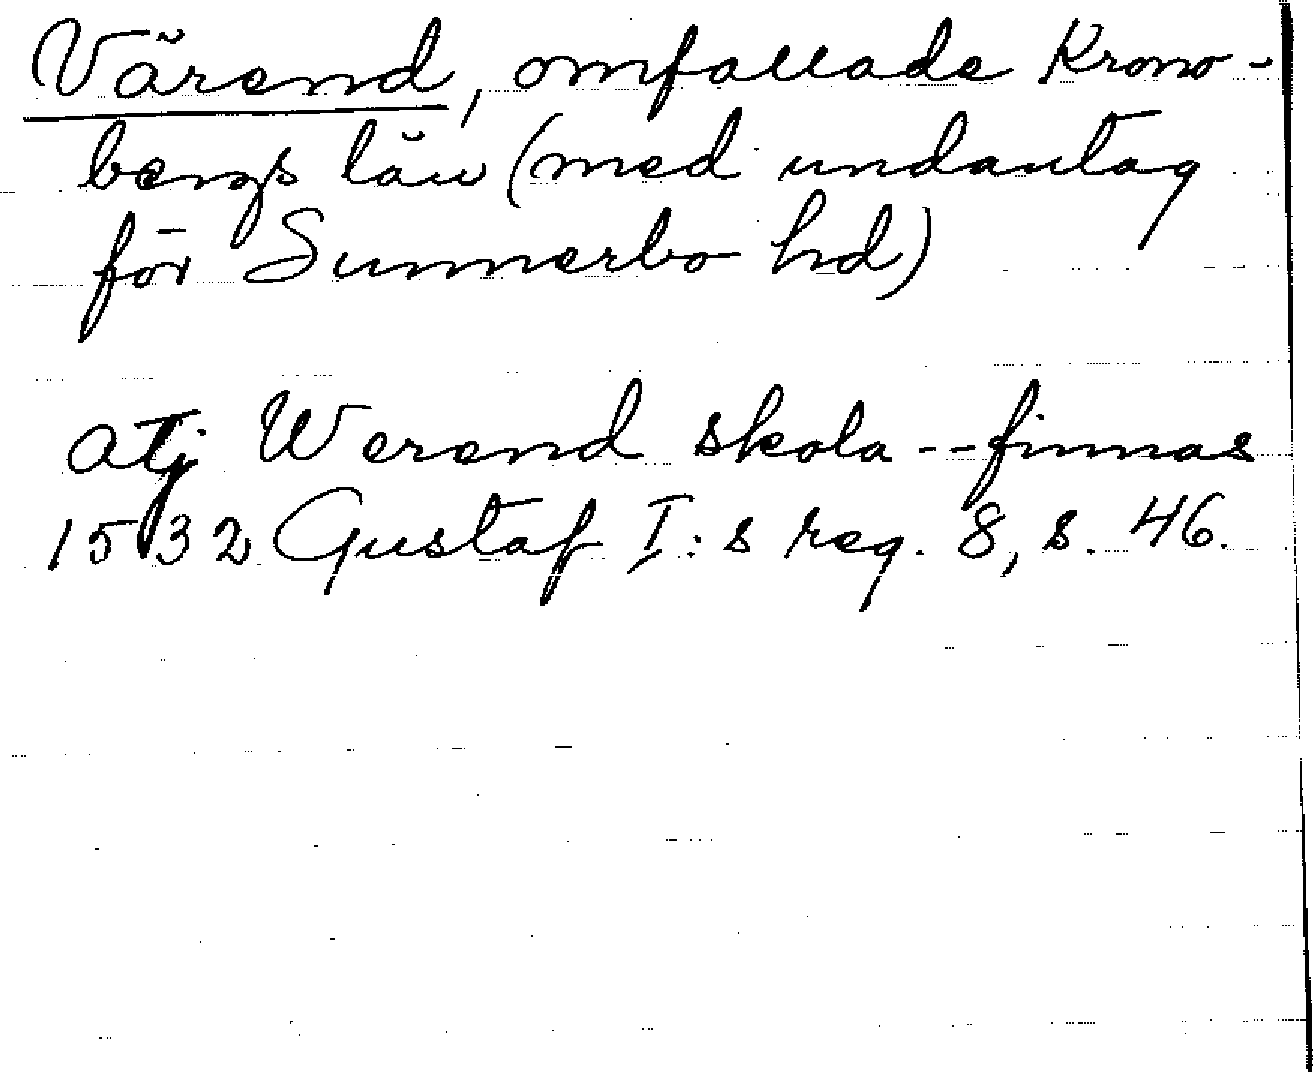 Värend, omfallade Krono-
bergs län (med undantag
för Sunnerbo hd)
atj Werend skola -- finnas
1532 Gustaf I:s reg. 8, s. 46.